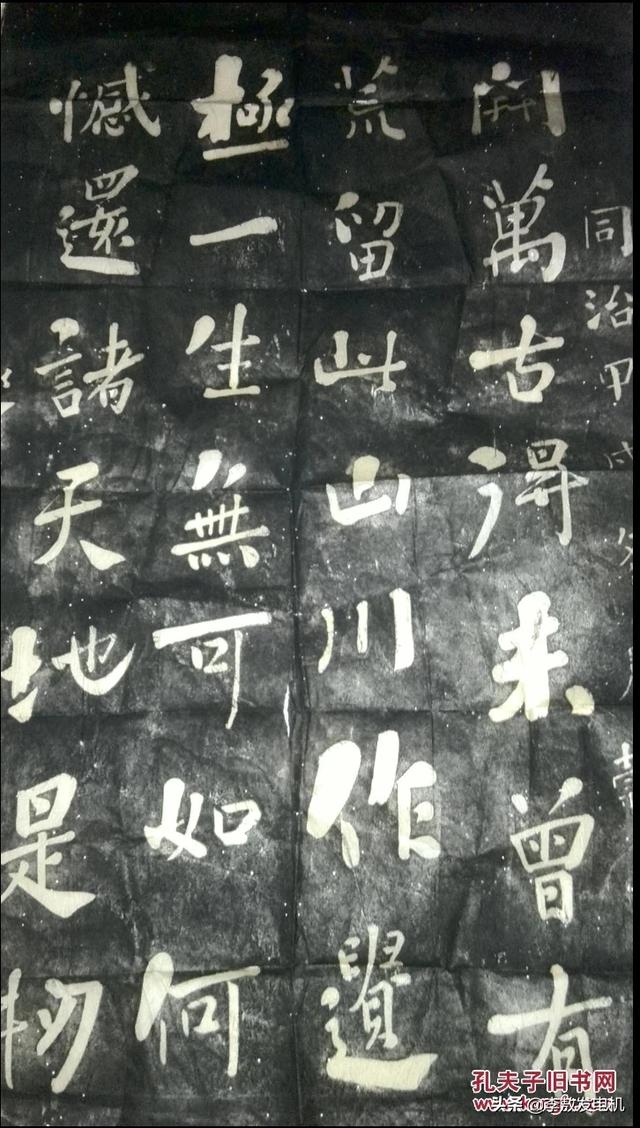 同治甲戌
開萬古得未曾有
荒留此山川作遺
極一生無可如何
憾還諸天地是
孔夫子旧书网
头条 @李敖发电机